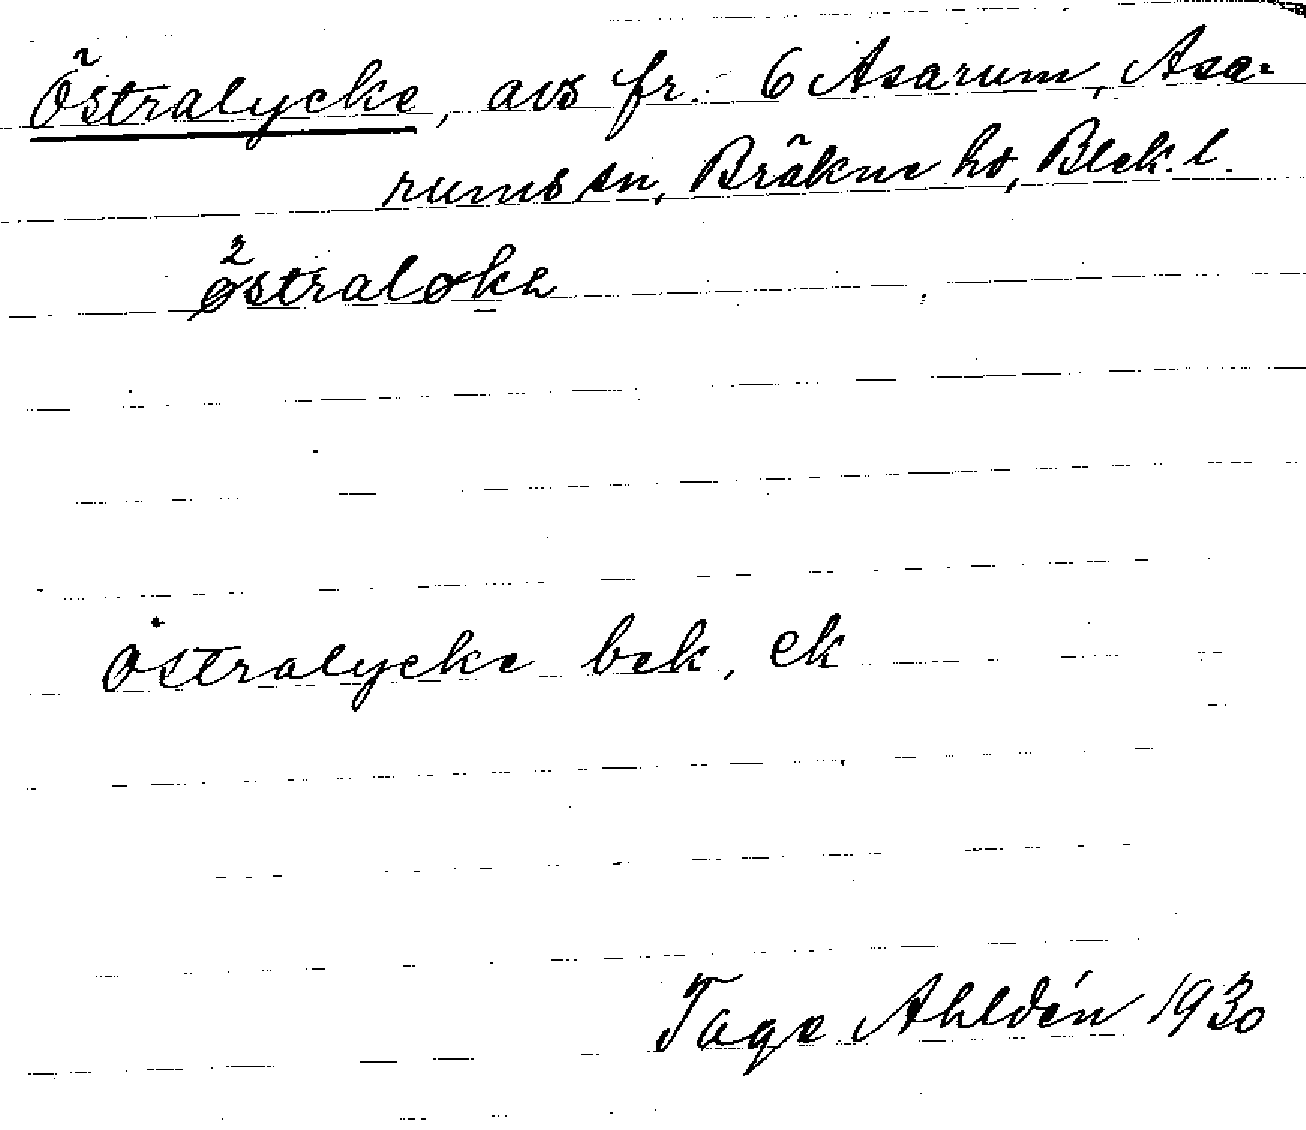 Östralycke, avs fr. 6 Asarum, Asa-
rums sn, Bräkne hd, Blek. l.
östralycke bek, ek
Tage Ahldén 1930